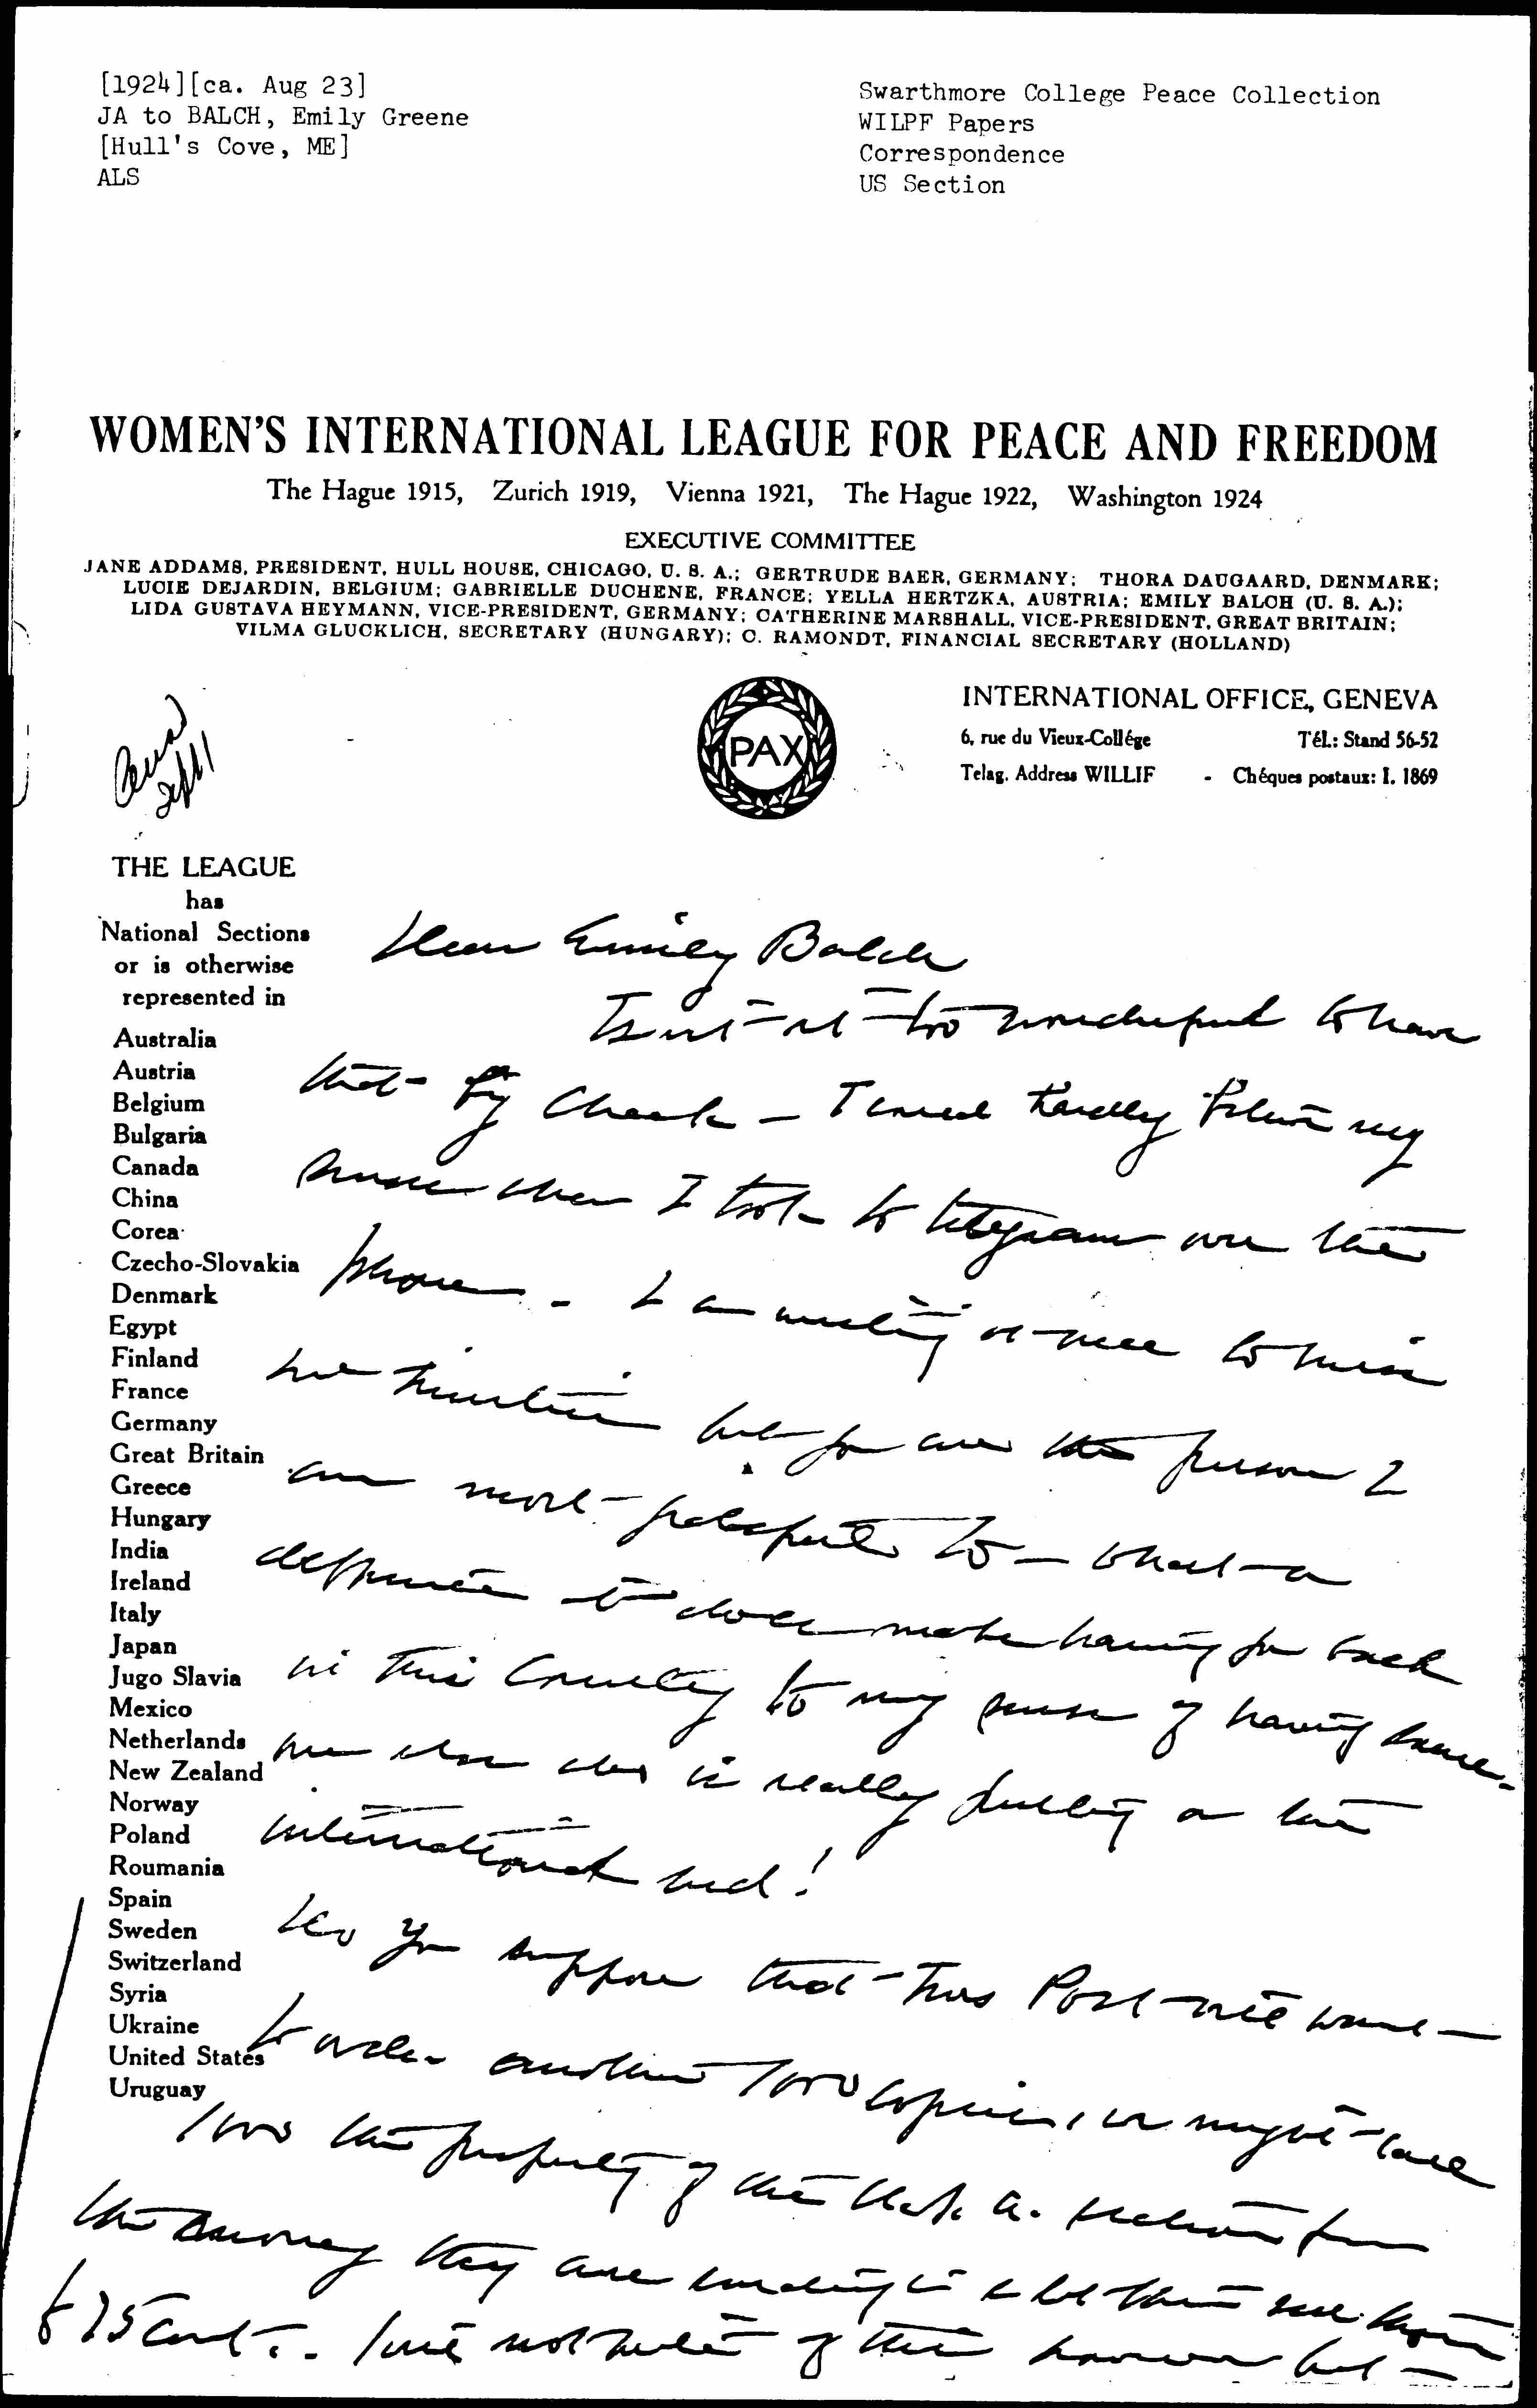 [1924][ca. Aug 23]
JA to BALCH, Emily Greene
[Hull's Cove, ME]
ALS
Swarthmore College Peace Collection
WILPF Papers
Correspondence
US Section
WOMEN'S INTERNATIONAL LEAGUE FOR PEACE AND FREEDOM
The Hague 1915, Zurich 1919, Vienna 1921, The Hague 1922, Washington 1924
EXECUTIVE COMMITTEE
JANE ADDAMS, PRESIDENT, HULL HOUSE, CHICAGO, U. S. A.; GERTRUDE BAER, GERMANY; THORA DAUGAARD, DENMARK;
LUCIE DEJARDIN, BELGIUM; GABRIELLE DUCHENE, FRANCE; YELLA HERTZKA, AUSTRIA; EMILY BALCH (U. S. A.);
LIDA GUSTAVA HEYMANN, VICE-PRESIDENT, GERMANY; CATHERINE MARSHALL, VICE-PRESIDENT, GREAT BRITAIN;
VILMA GLUCKLICH, SECRETARY (HUNGARY); C. RAMONDT, FINANCIAL SECRETARY (HOLLAND)
PAX
INTERNATIONAL OFFICE, GENEVA
6, rue du Vieux-Collége Tél.: Stand 56-52
Telag. Address WILLIF - Chéques postaux: I. 1869
Sept 1
THE LEAGUE
has
National Sections
or is otherwise
represented in
Australia
Austria
Belgium
Bulgaria
Canada
China
Corea
Czecho-Slovakia
Denmark
Egypt
Finland
France
Germany
Great Britain
Greece
Hungary
India
Ireland
Italy
Japan
Jugo Slavia
Mexico
Netherlands
New Zealand
Norway
Poland
Roumania
Spain
Sweden
Switzerland
Syria
Ukraine
United States
Uruguay
Dear Emily Balch
Isn't it too wonderful to have
that big check - I could hardly believe my
senses when I took the telegram over the
phone. - I am writing at once to Miss
but you are the person I
am most grateful to - what a
difference it does make having you back
in this country to my sense of having some-
one else who is really pulling on the
international end!
Do you suppose that Miss Post will want
to order another 1000 copies, or might take
1000 the property of the U.S. A. section for
the money they are sending in & let them sell them
@ 75 cents. I will not write of this however but